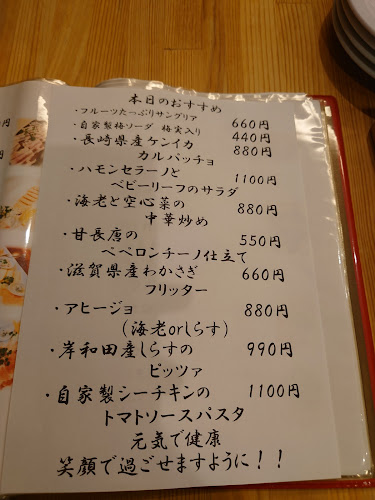 本日のおすすめ
・フルーツたっぷりサングリア 660円
・自家製梅ソーダ 梅実入り 440円
・長崎県産ケンイカ 880円
カルパッチョ
・ハモンセラーノと 1100円
ベビーリーフのサラダ
・海老と空心菜の 880円
中華炒め
・甘長唐の 550円
ペペロンチーノ仕立て
・滋賀県産わかさぎ 660円
フリッター
・アヒージョ 880円
(海老orしらす)
・岸和田産しらすの 990円
ピッツァ
・自家製シーチキンの 1100円
トマトソースパスタ
元気で健康
笑顔で過ごせますように!!
円
円